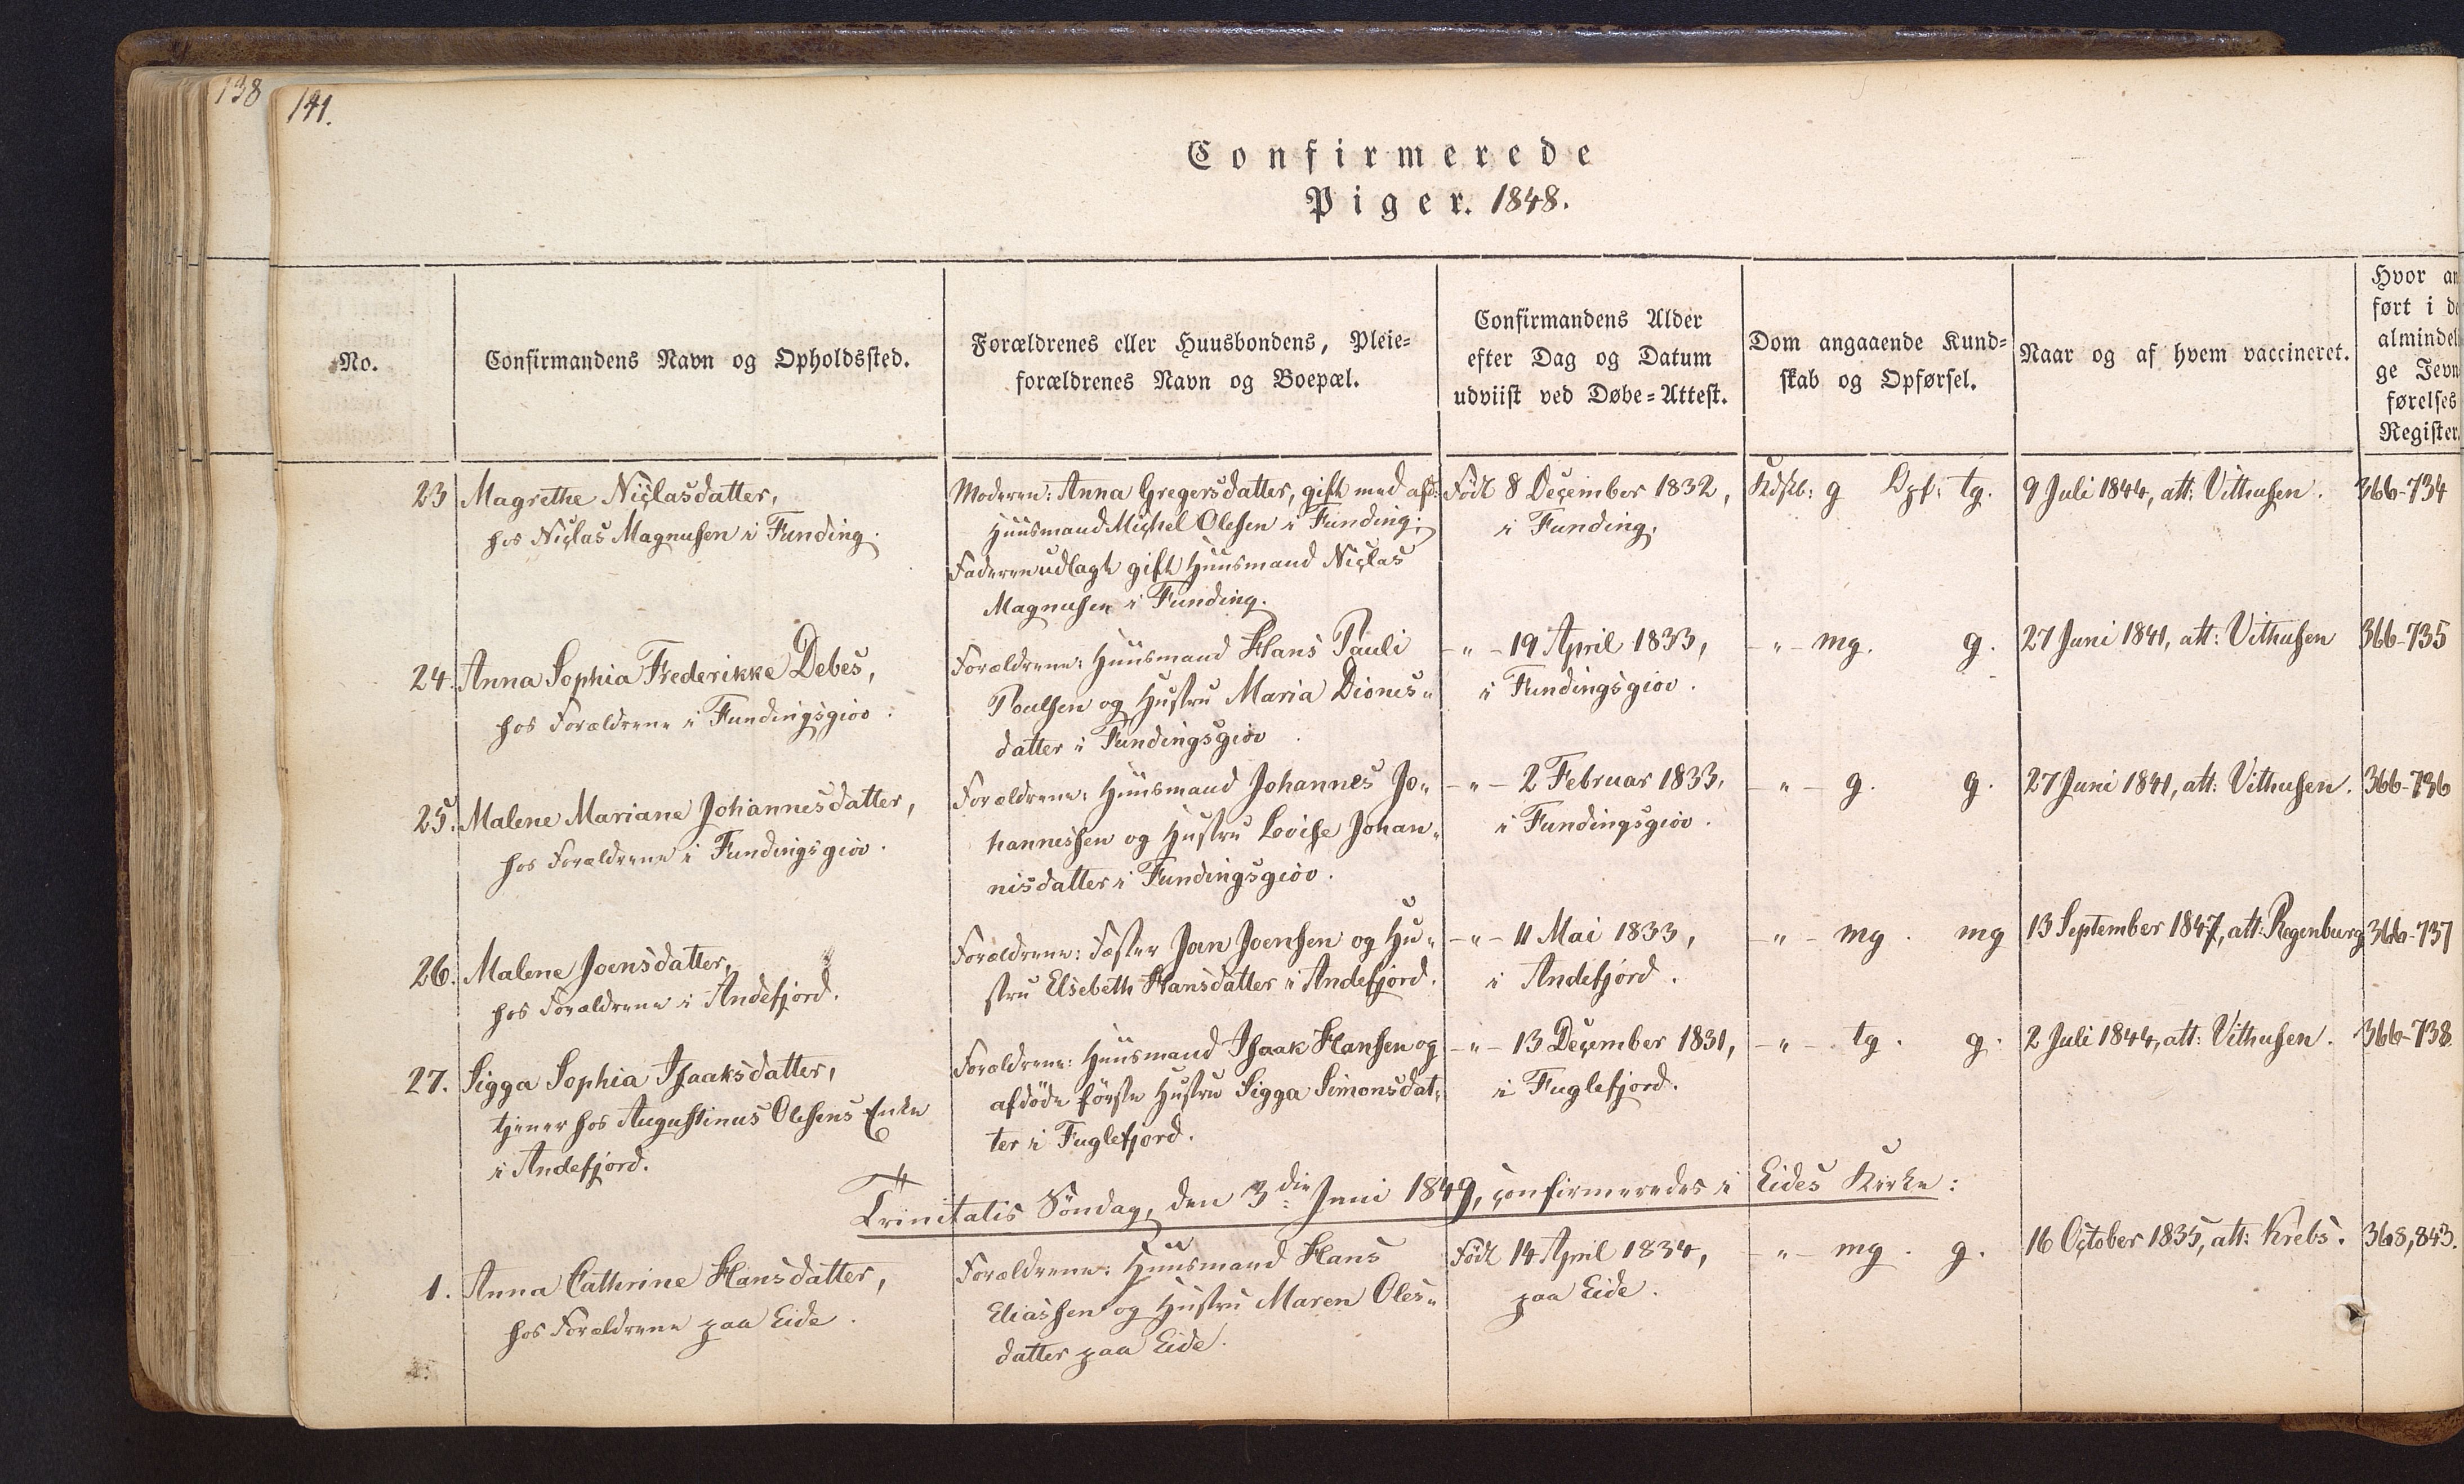 138
141.
Confirmerede
Piger. 1848.
No.
Confirmandens Navn og Opholdssted.
Forældrenes eller Huusbondens, Pleie=
forældrenes Navn og Boepæl.
Confirmandens Alder
efter Dag og Datum
udviist ved Døbe=Attest.
Dom angaaende Kund=
skab og Opførsel.
Naar og af hvem vaccineret.
Hvor an
ført i de
almindel
ge Jevn
førelses
Register.
23
Magrethe Niclasdatter,
hos Niclas Magnussen i Funding.
Moderen: Anna Gregersdatter, gift med afd:
Huusmand Michel Olesen i Funding;
Faderen udlagt gift Huusmand Niclas
Magnussen i Funding.
Født 8 December 1832,
i Funding.
Kdskb: g Opf: tg.
9 Juli 1844, att: Vithusen.
366-734
24.
Anna Sophia Frederikke Debes,
hos Forældrene i Fundingsgiov.
Forældrene: Huusmand Hans Pauli
Poulsen og Hustru Maria Diones=
datter i Fundingsgiov.
-"- 19 April 1833,
i Fundingsgiov.
-"- mg. g.
27 Juni 1841, att: Vithusen
366-735
25.
Malene Mariane Johannesdatter,
hos Forældrene i Fundingsgiov.
Forældrene: Huusmand Johannes Jo=
hannessen og Hustru Lovise Johan=
nisdatter i Fundingsgiov.
-"- 2 Februar 1833,
i Fundingsgiov.
-"- g. g.
27 Juni 1841, att: Vithusen.
366-736
26.
Malene Joensdatter,
hos Forældrene i Andefjord.
Forældrene: Fæster Joen Joensen og Hu=
stru Elsebeth Hansdatter i Andefjord.
-"- 11 Mai 1833,
i Andefjord.
-"- mg. mg
13 September 1847, att: Regenburg
366-737
27.
Sigga Sophia Isaaksdatter,
tjener hos Augustinus Olesens Enke
i Andefjord.
Forældrene: Huusmand Isaak Hansen og
afdöde förste Hustru Sigga Simonsdat=
ter i Fuglefjord.
-"- 13 December 1831,
i Fuglefjord.
-"- tg. g.
2 Juli 1844, att: Vithusen.
366-738
Trinitatis Söndag, den 3die Juni 1849, confirmeredes i Eides Kirke:
1.
Anna Cathrine Hansdatter,
hos Forældrene paa Eide.
Forældrene: Huusmand Hans
Eliassen og Hustru Maren Oles=
datter paa Eide.
Født 14 April 1834,
paa Eide.
-"- mg. g.
16 October 1835, att: Krebs.
368,843.